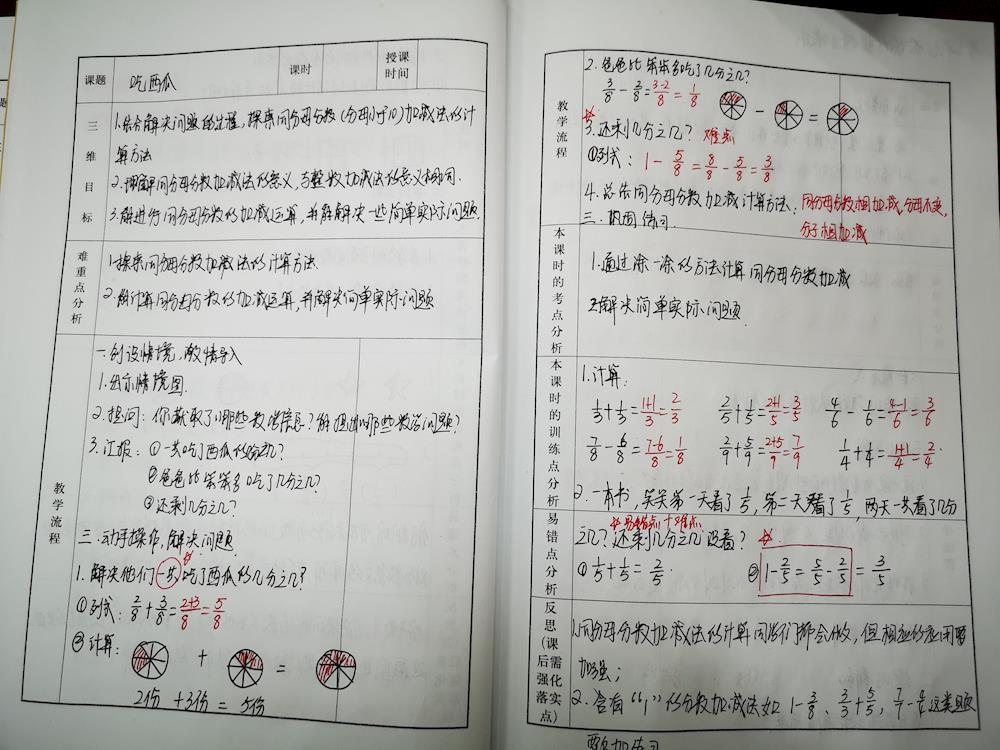 课题 吃西瓜 课时 授课时间
三维目标
1.结合解决问题的过程，探索同分母分数(分母小于10)加减法的计
算方法
2.理解同分母分数加减法的意义，与整数加减法的意义相同.
3.能进行同分母分数的加减运算，并能解决一些简单实际问题.
难重点分析
1.探索同分母分数加减法的计算方法
2.能计算同分母分数的加减运算，并解决简单实际问题
教学流程
一.创设情境，激情导入
1.出示情境图.
2.提问：你获取了哪些数学信息？能提出哪些数学问题？
3.汇报：①一共吃了西瓜的几分之几？
②色色比笨笨多吃了几分之几？
③还剩几分之几？
二.动手操作，解决问题
1.解决他们一共吃了西瓜的几分之几？
①列式：2/8+3/8=2+3/8=5/8
②计算：
+ =
2份 +3份 = 5份
教学流程
2.色色比笨笨多吃了几分之几？
3/8-2/8=3-2/8=1/8
- =
3.还剩几分之几？难点
①列式：1-5/8=8/8-5/8=3/8
4.总结同分母分数加减计算方法：同分母分数相加减，分母不变，
分子相加减
三.巩固练习.
本课时的考点分析
1.通过涂一涂的方法计算同分母分数加减
2.解决简单实际问题.
本课时的训练点分析
1.计算：
1/3+1/3=1+1/3=2/3 2/5+1/5=2+1/5=3/5 4/6-1/6=4-1/6=3/6
7/8-6/8=7-6/8=1/8 2/9+5/9=2+5/9=7/9 1/4+1/4=1+1/4=2/4
2.一本书，笑笑第一天看了1/5，第二天看了1/5，两天一共看了几分
易错点分析
易错点+难点
之几？还剩几分之几没看？
①1/5+1/5=2/5. ②1-2/5=5/5-2/5=3/5
反思(课后需强化落实点)
1.同分母分数加减法的计算同学们都会做，但相应的应用需
加强；
2.含有“1”的分数加减法如1-3/8、3/3+5/5，7/7-4/4这类题
要加练习